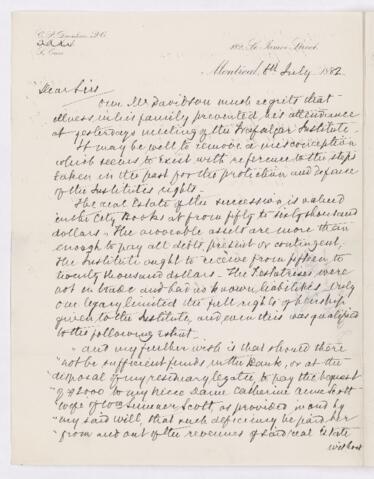 C. P. Davidson, Q.C.
182, St. James Street.
Montreal, 8th July 1882
Dear Sirs
Our Mr Davidson much regrets that
illness in his family prevented his attendance
at yesterdays meeting of the Trafalgar Institute.
It may be well to remove a misconception
which seems to exist with reference to the steps
taken in the past for the protection and defense
of the Institutes rights.
The real Estate of the succession is valued
in the City books at from fifty to sixty thousand
dollars. The moveable assets are more than
enough to pay all debts present or contingent.
The Institute ought to receive from fifteen to
twenty thousand dollars. The Testatrixes were
not in trade and had no known liabilities. Only
one legacy limited the full rights of ownership
given to the Institute, and even this was qualified
to the following extent.
"and my further wish is that should there
"not be sufficient funds in the Bank, or at the
"disposal of my residuary legatee to pay the bequest
"of $8000 to my niece Dame Catherine Anne Scott
"wife of Wm Sumner Scott, as provided in and by
"my said will, that such deficiency be paid her
"from and out of the revenues of said real Estate
without